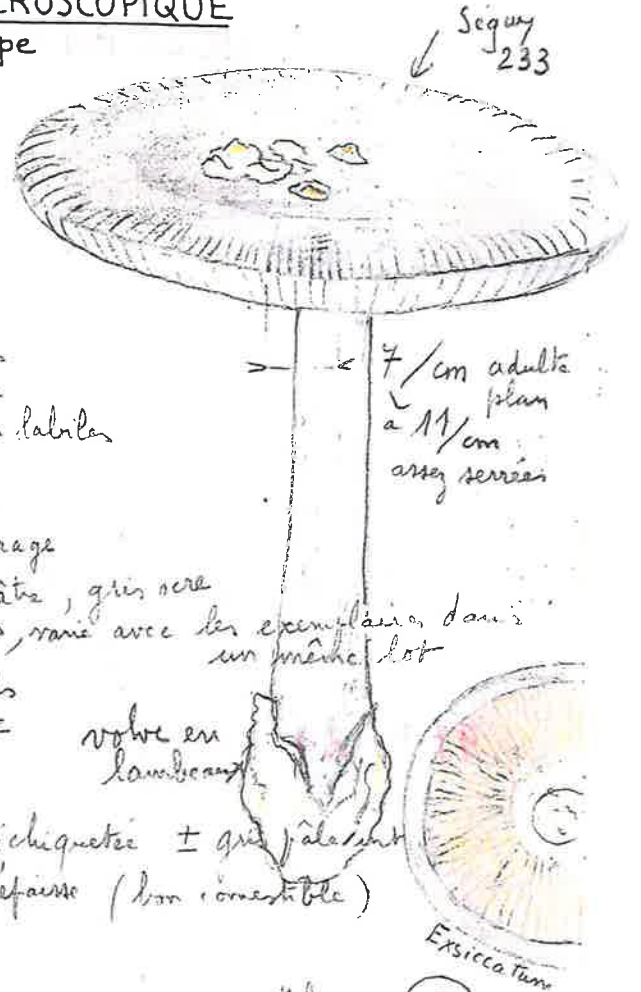 CROSCOPIQUE
pe
Séguy
233
7/cm adulte
plan
à 11/cm
assez serrées
labiles
rage
âtre, gris ocre
, varie avec les exemplaires dans
un même lot
volve en
lambeaux
chiquetée ± gris pâle int
épaisse (bon comestible)
Exsiccatum